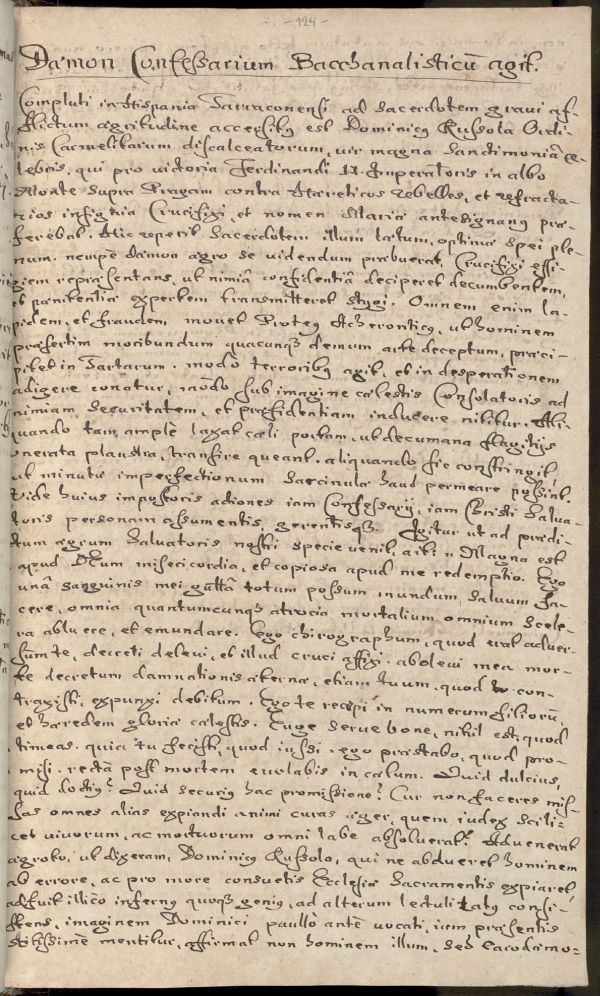 - 124 -
Dæmon Confessarium Bacchanalisticū agit.
Compluti in Hispania Tarraconensi ad Sacerdotem gravi af-
flictum ægritudine accersitus est Dominicus Russola Ordi-
nis Carmelitarum discalceatorum, vir magna Sanctimonia ce-
lebris, qui pro victoria Ferdinandi II. Imperatoris in albo
Monte supra Pragam contra Hæreticos rebelles, et refracta-
rios insignia Crucifixi, et nomen Mariæ antesignanus præ-
ferebat. Hic reperit Sacerdotem illum lætum, optimæ spei ple-
num. nempe Dæmon ægro se videndum præbuerat, Crucifixi effi-
giem repræsentans, ut nimiâ confidentiâ deciperet decumbentem,
et pænitentiæ expertem transmitteret stygi. Omnem enim la-
pidem, et fraudem movet Proteus Acheronticus, ut hominem
præsertim moribundum quacunqꝫ demum arte deceptum, præci-
pitet in Tartarum. modò terroribus agit, et in desperationem
adigere conatur, modò sub imagine cælestis Consolatoris ad
nimiam securitatem, et præfidentiam inducere nititur. Ali-
quando tam amplè laxat cæli portam, ut decumana flagitijs
onerata plaustra, transire queant. aliquando sic constringit,
ut minutæ imperfectionum Sarcinulæ haud permeare possint.
Vide huius impostoris actiones iam Confessarij, iam Christi Salva-
toris personam assumentis, gerentisqꝫ. Igitur ut ad prædi-
ctum ægrum Salvatoris nostri specie venit, ait: Magna est
apud Deum misericordia, et copiosa apud me redemptio. Ego
unâ sanguinis mei guttâ totum possum mundum, saluum fa-
cere, omnia quantumcunqꝫ atrocia mortalium omnium Scele-
ra abluere, et emundare. Ego chirographum, quod erat adver-
sum te, decreti delevi, et illud cruci affixi. abolevi mea mor-
te decretum damnationis æternæ, etiam tuum, quod con-
traxisti, expunxi debitum. Ego te recepi in numerum filiorū,
et hæredem gloriæ cælestis. Euge serve bone, nihil est, quod
timeas. quia tu fecisti, quod iussi. ego præstabo, quod pro-
misi. rectà post mortem evolabis in cælum. Quid dulcius,
quid doctius? Quid securius hac promissione? Cur non faceres mis-
sas omnes alias expiandi animi curas æger, quem iudex scili-
cet vivorum, ac mortuorum omni labe absolverat? Advenerat
ægroto, ut dixeram, Dominicus Russola, qui ne abduceret hominem
ab errore, ac pro more consuetis Ecclesiæ Sacramentis expiaret,
adfuit illico infernus quoqꝫ genius, ad alterum lectuli latus consi-
stens, imaginem Dominici paullò antè vocati, iam præsentis
mentitur, affirmat non hominem illum, sed Cacodæmo-